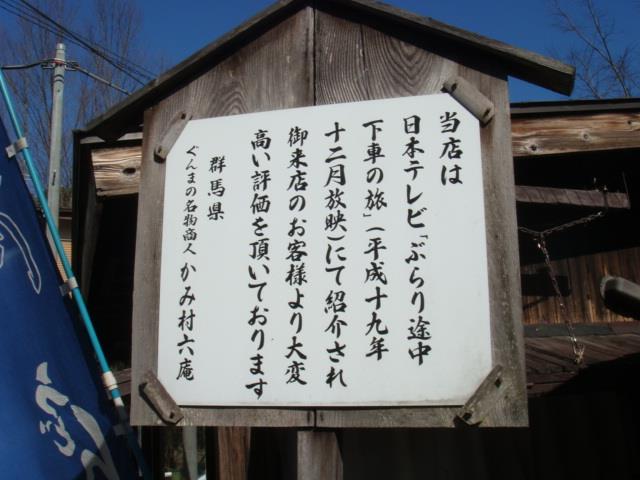 当店は
日本テレビ「ぶらり途中
下車の旅」（平成十九年
十二月放映）にて紹介され
御来店のお客様より大変
高い評価を頂いております
群馬県
ぐんまの名物商人 かみ村六庵